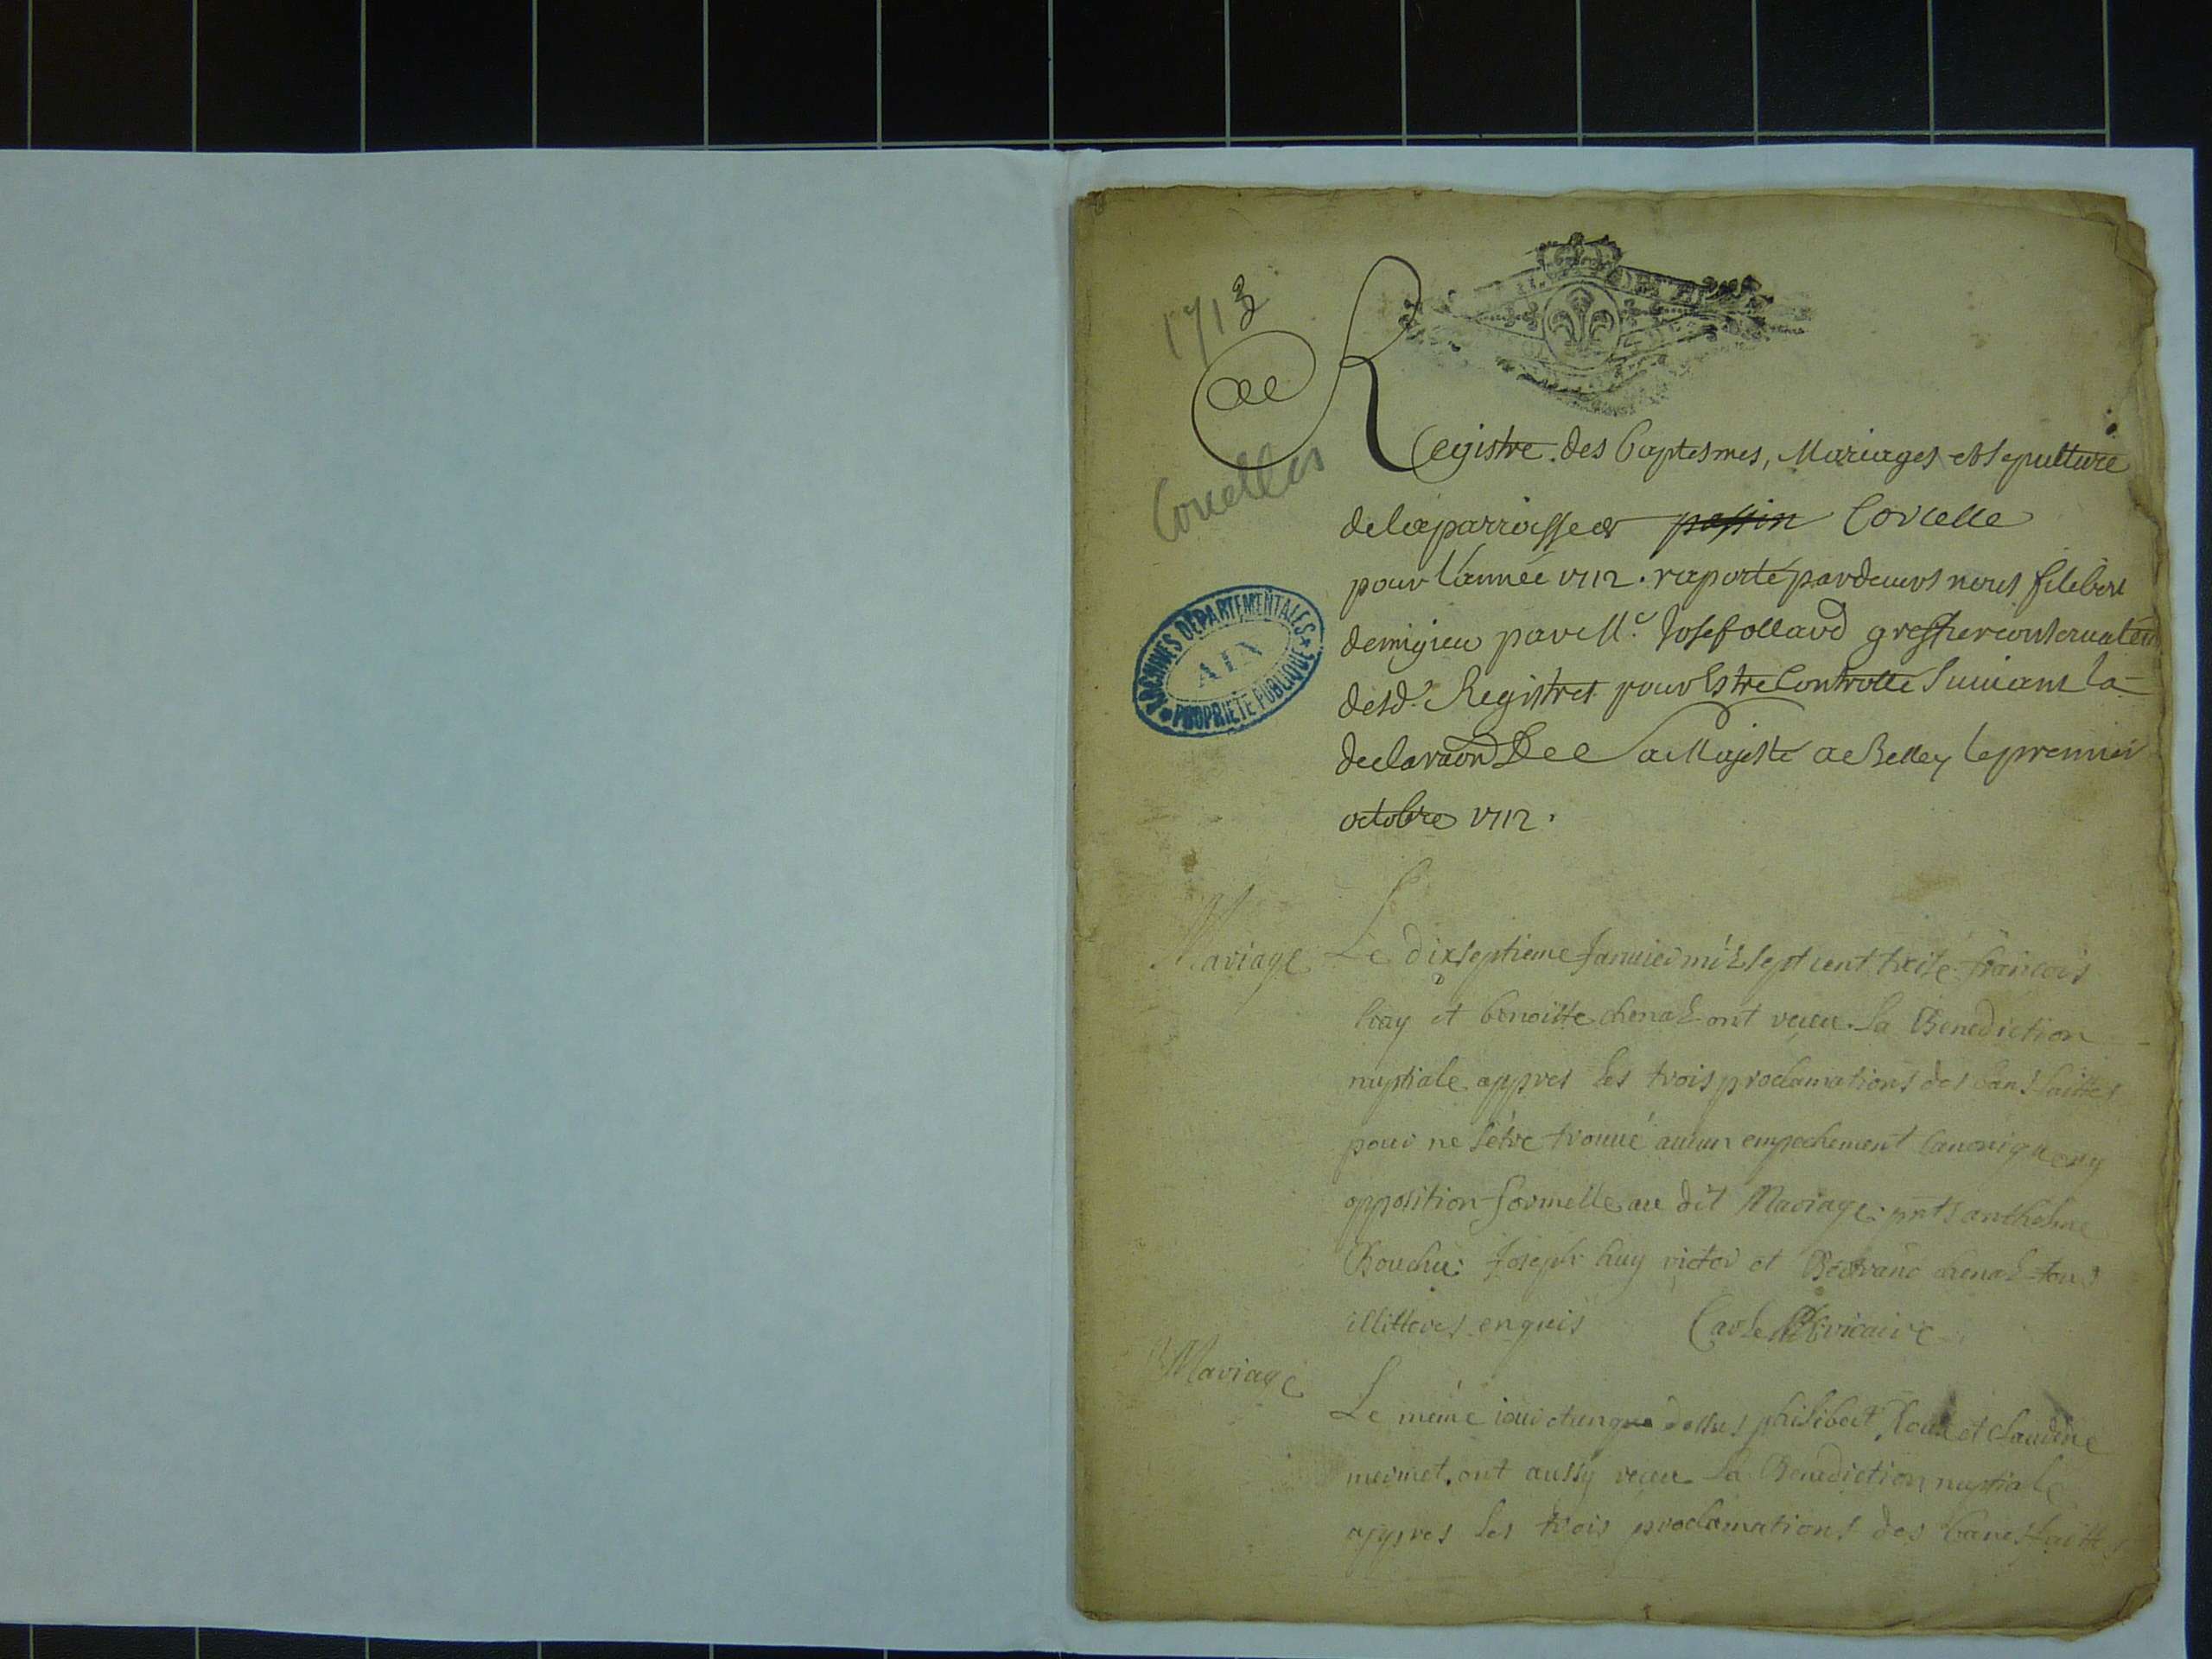 1713
Corcelles
ARCHIVES DEPARTEMENTALES
AIN
PROPRIETE PUBLIQUE
Registre des baptesmes, Mariages et sepulture
de la parroisse de passin Corcelle
pour l'année 1712. raporté pardevers nous filebert
demigieu par Mr. Josef ollard greffier conservateur
desd. Registres pour Estre Controllé suivant la
declaraon De sa Majesté a Belley le premier
octobre 1712.
Mariage
Le dixseptieme Janvier mil sept cent treise françois
et benoiste chenal ont receu la Benediction
nuptiale appres les trois proclamations des bans faittes
pour ne s'étre trouué aucun empechement canonique ny
opposition formelle au dit Mariage: pnts anthelme
Bouchu: Joseph huy victor et Bertrand chenal tous
illitteres enquis vicaire
Mariage
Le méme iour et an que dessus philibert et claudine
mermet. ont aussy receu la Benediction nuptiale
appres les trois proclamations des bans faittes